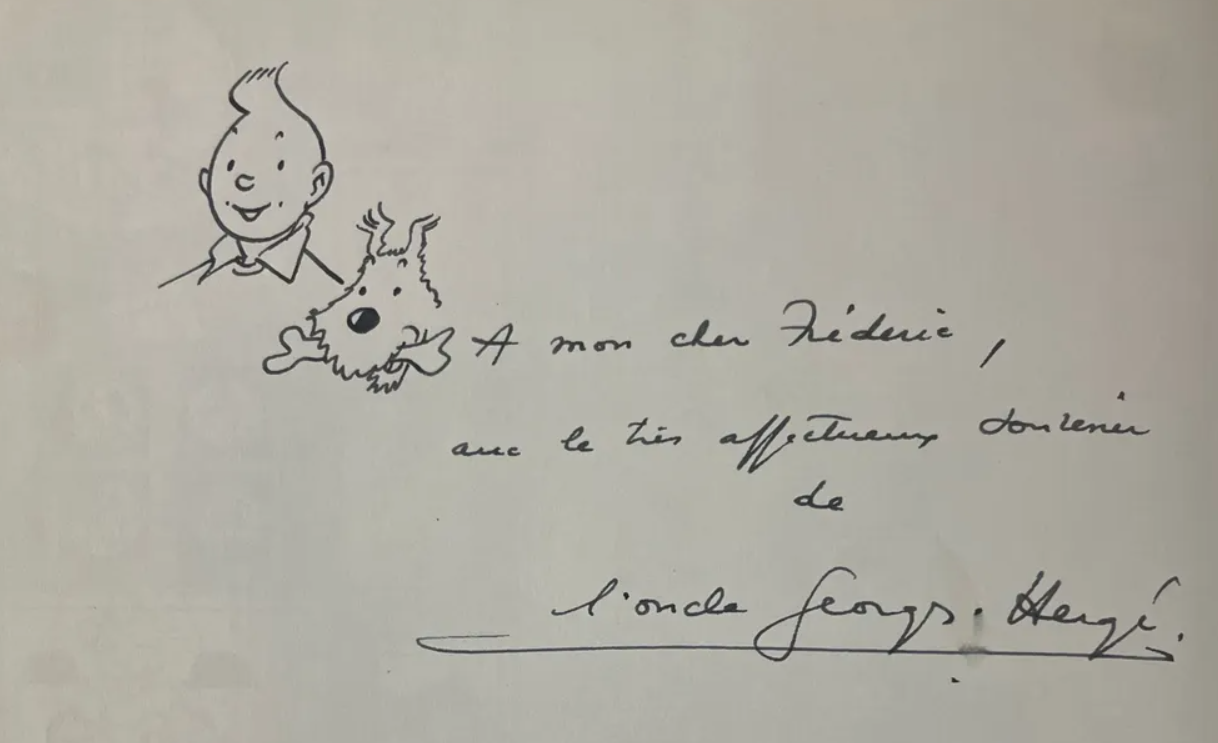 A mon cher Fréderic,
avec le très affectueux souvenir
de
l'oncle Georges. Hergé.